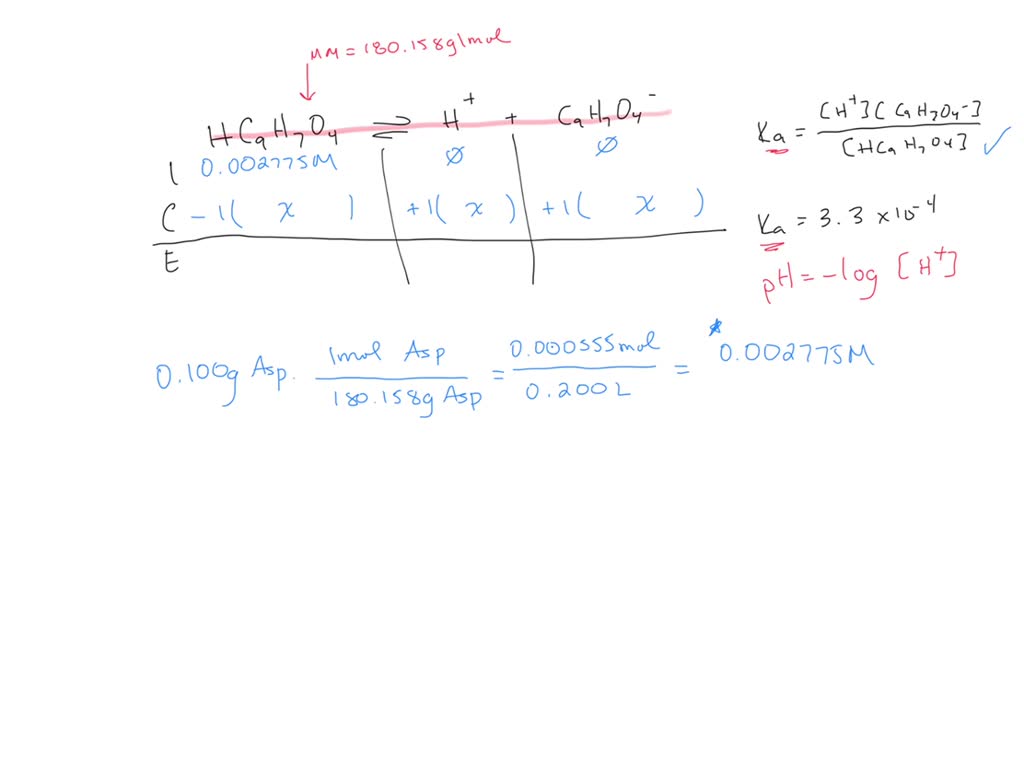 MM = 180.158g/mol
HC₉H₇O₄ ⇌ H⁺ + C₉H₇O₄⁻
I 0.002775M ∅ ∅
C -1( x ) +1( x ) +1( x )
E
Ka = [H⁺][C₉H₇O₄⁻] / [HC₉H₇O₄] ✓
Ka = 3.3 x10⁻⁴
pH = -log [H⁺]
0.100g Asp. 1mol Asp / 180.158g Asp = 0.000555mol / 0.200L = *0.002775M